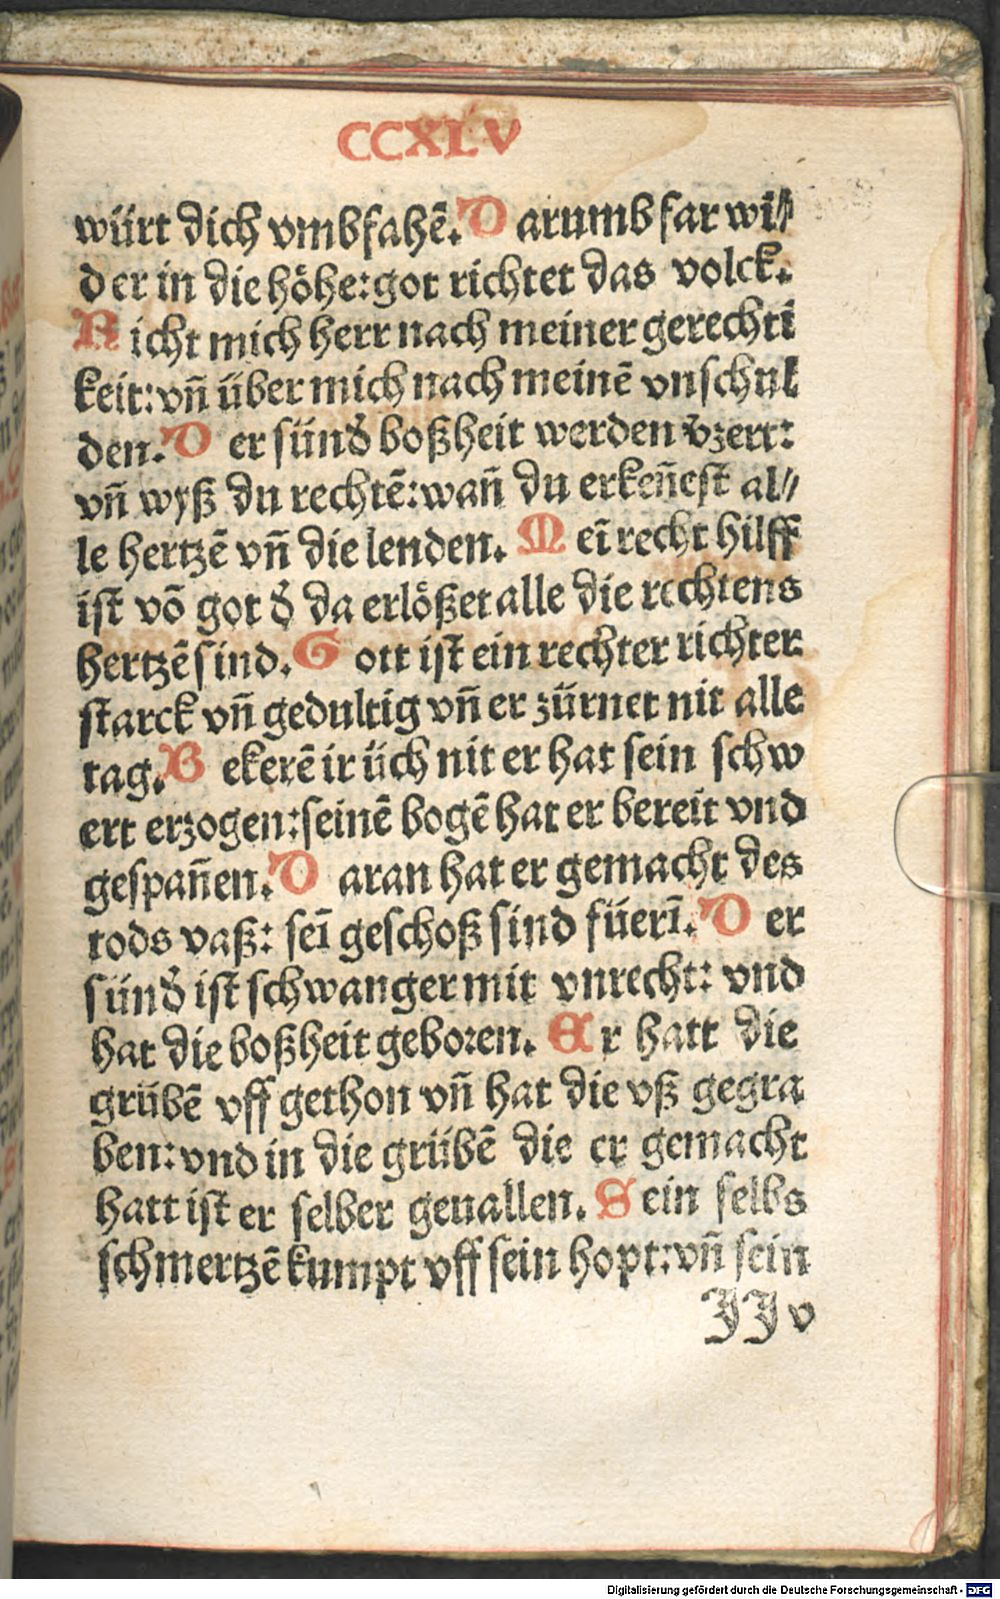 CCXLV
würt dich vmbfahē. Darumb far wi//
der in die höhe: got richtet das volck.
Richt mich herr nach meiner gerechti
keit: vñ über mich nach meinē vnschul
den. Der sünd̾ boßheit werden v̾zert:
vñ wyß du rechtē: wañ du erkeñest al//
le hertzē vñ die lenden. Meī recht hilff
ist vō got d̾ da erlößet alle die rechtens
hertzē sind. Gott ist ein rechter richter
starck vñ gedultig vñ er zürnet nit alle
tag. Bekerē ir üch nit er hat sein schw
ert erzogen: seinē bogē hat er bereit vnd
gespañen. Daran hat er gemacht des
tods vaß: seī geschoß sind füerī. Der
sünd̾ ist schwanger mit vnrecht: vnd
hat die boßheit geboren. Er hatt die
grübē vff gethon vñ hat die vß gegra
ben: vnd in die grübē die er gemacht
hatt ist er selber geuallen. Sein selbs
schmertzē kumpt vff sein hopt: vñ sein
JJ v
Digitalisierung gefördert durch die Deutsche Forschungsgemeinschaft - DFG